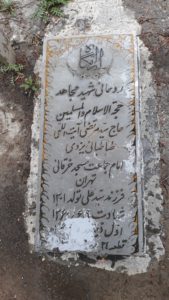 روحانی شهید مجاهد
حجة الاسلام والمسلمین
حاج سید مرتضی آیت اللهی
طباطبائی یزدی
امام جماعت مسجد خرقانی
تهران
فرزند سید علی تولد ۱۳۰۱
شهادت
قطعه